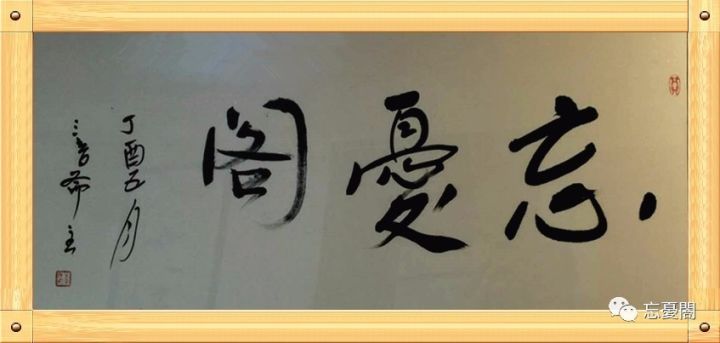 忘憂閣
丁酉五月
忘憂閣